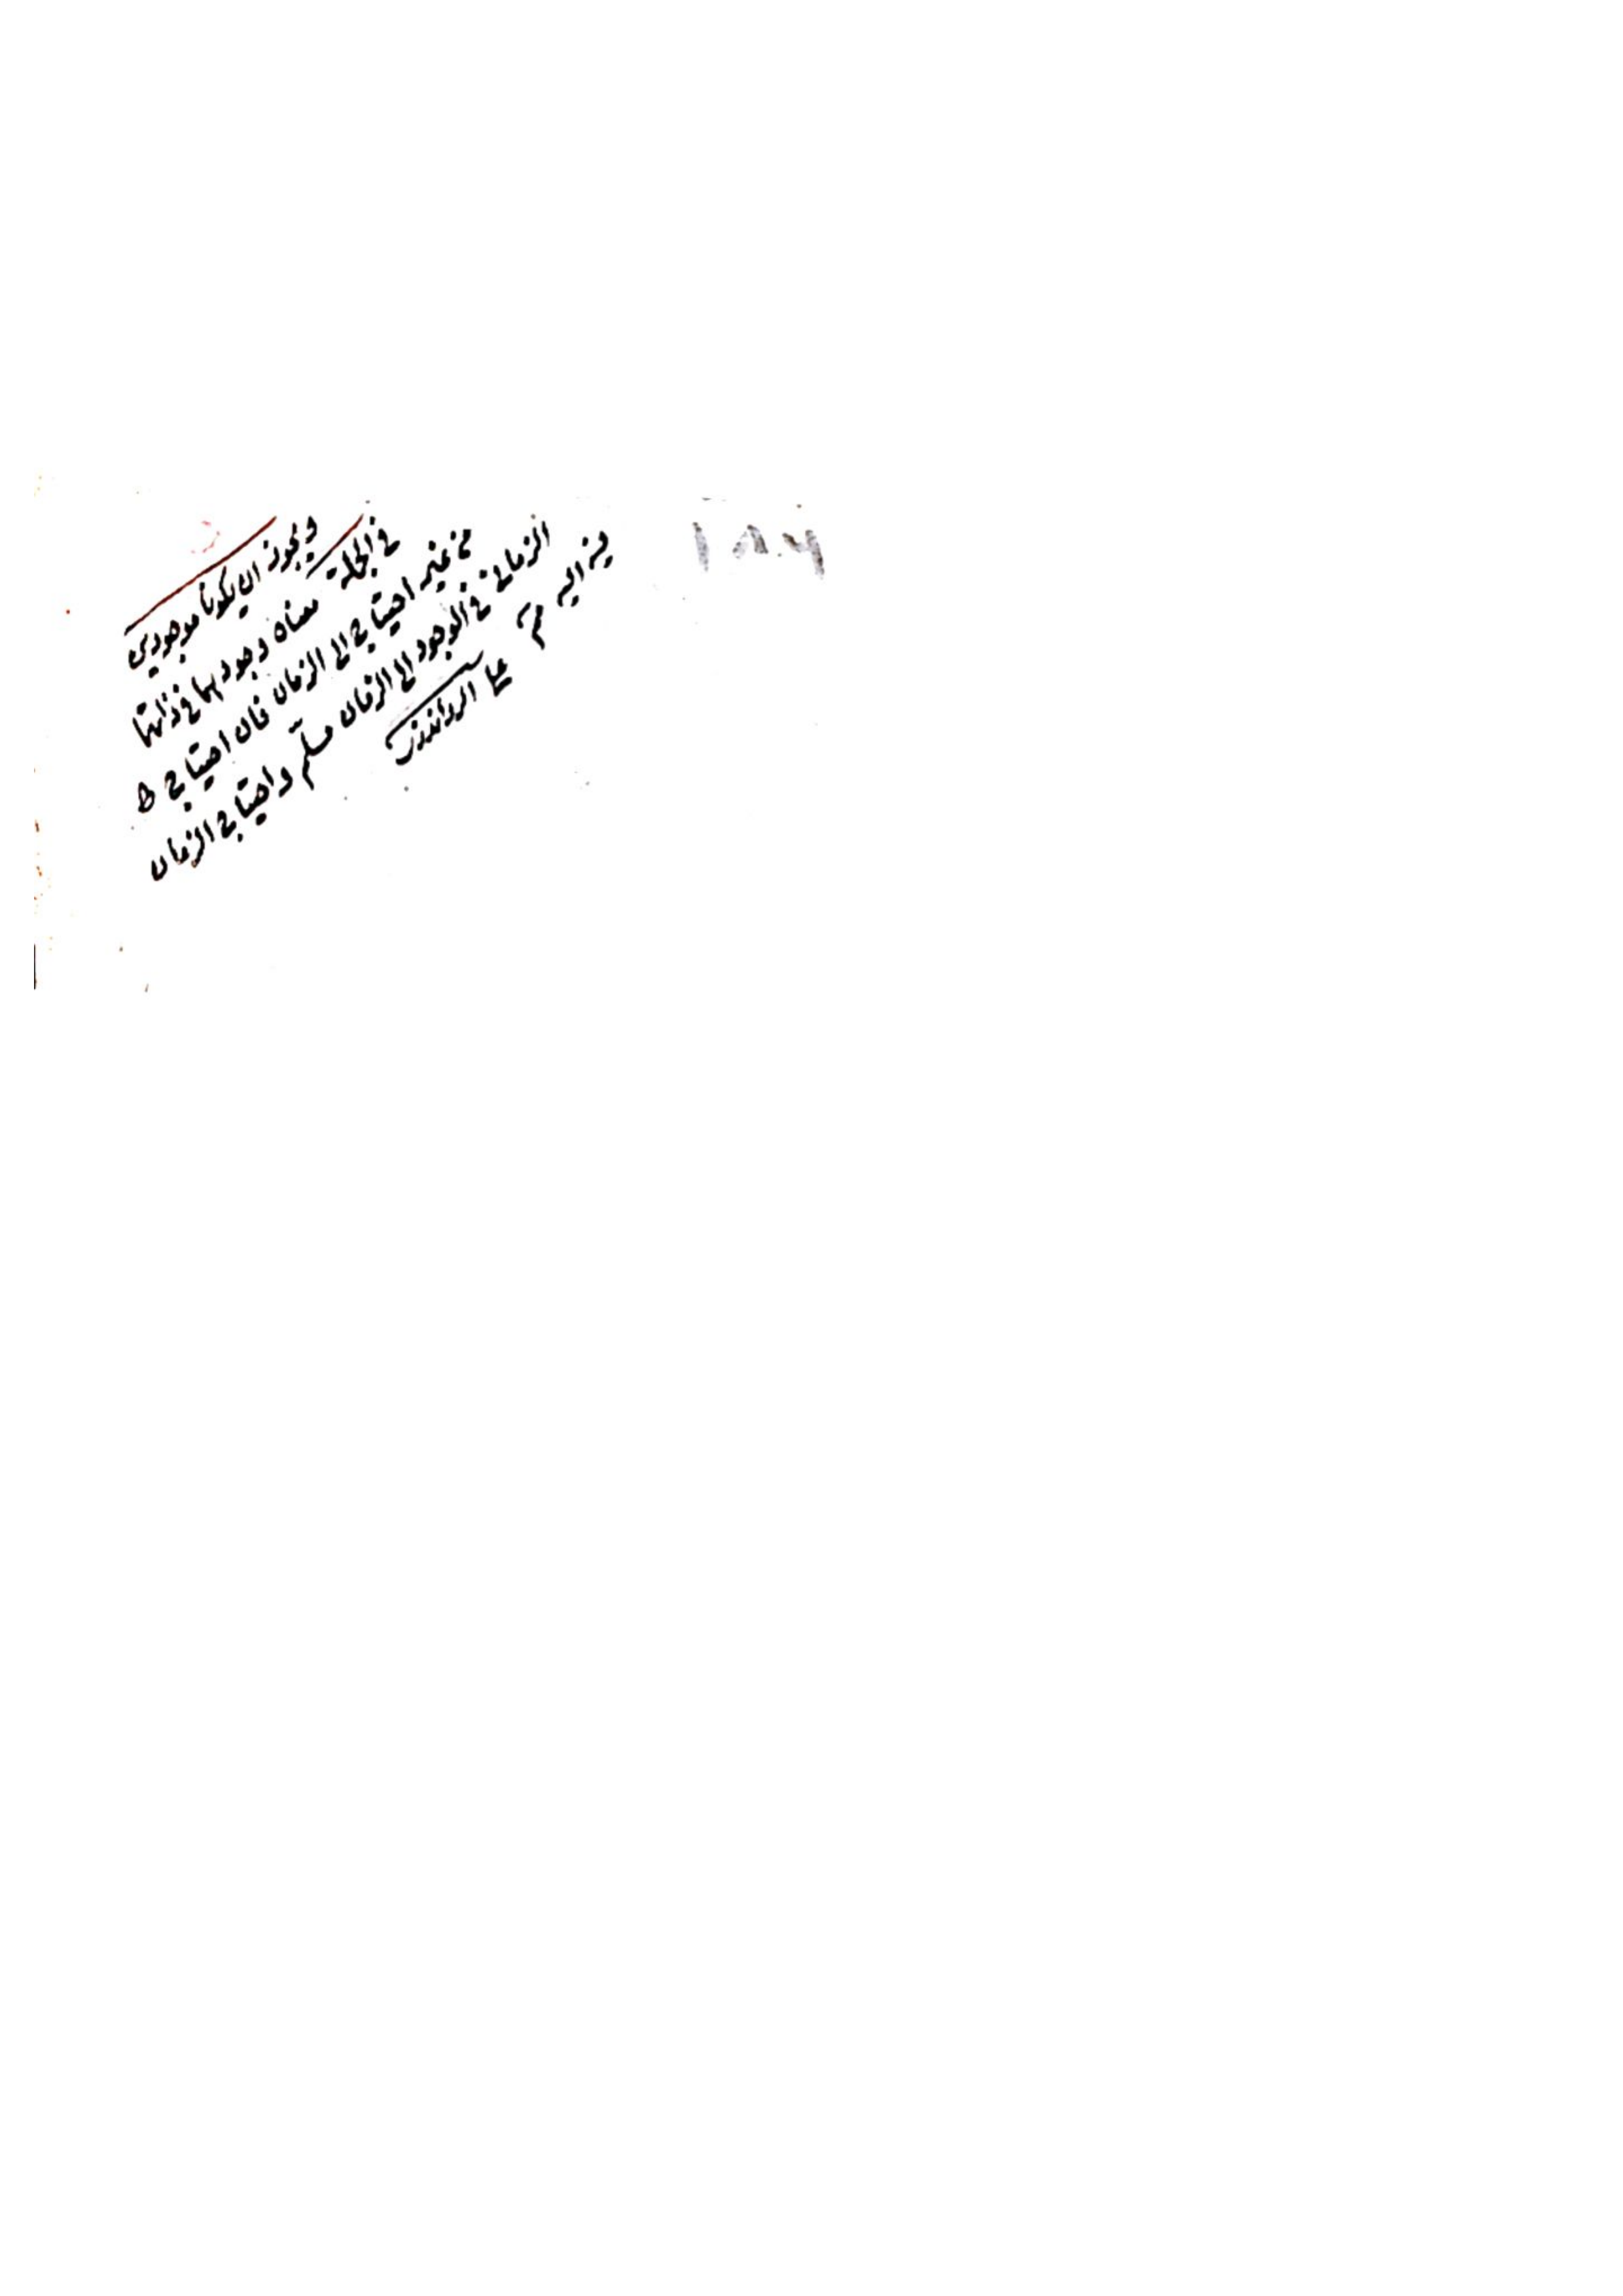 ويجوز ان يكونا موجودين
في الجملة معناه وجودهما في ذاتهما
من غير احتياج الى الزمان فان احتياج
الزماني في الوجود الى الزمان مسلم واحتياج الزمان
اليه
١٨٦